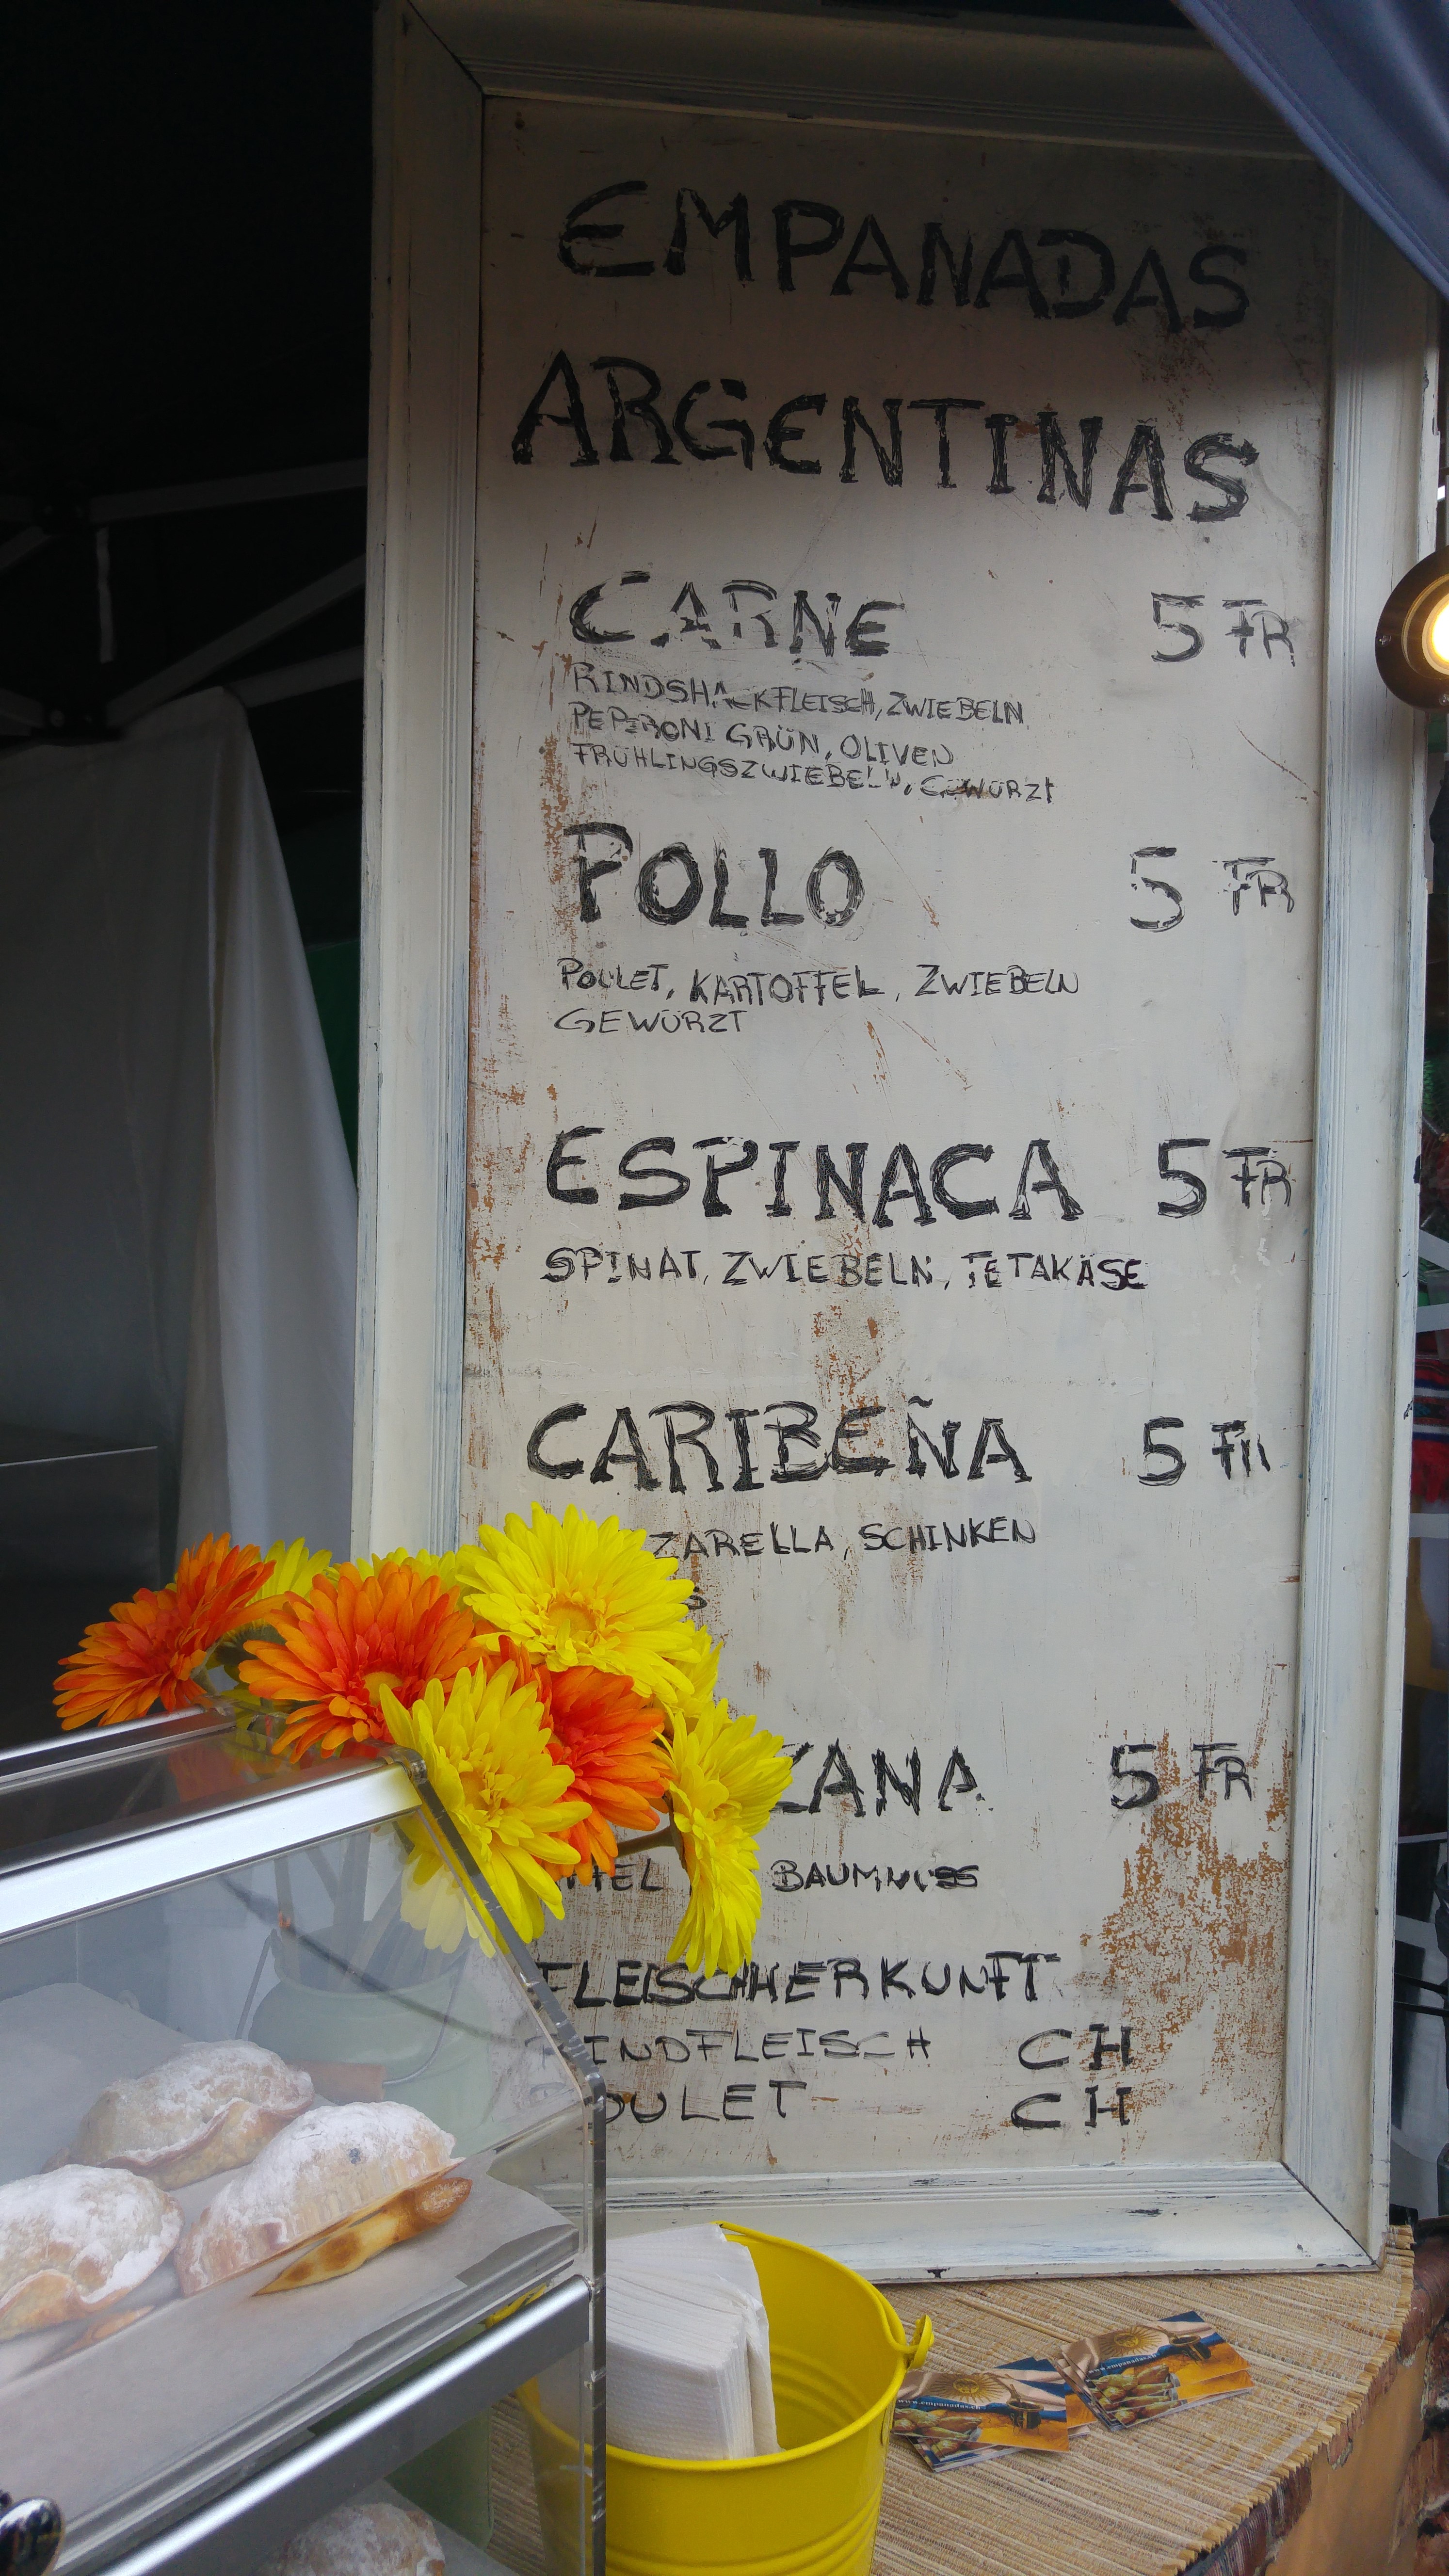 EMPANADAS
ARGENTINAS
CARNE 5 FR
RINDSHACKFLEISCH, ZWIEBELN
PEPERONI GRÜN, OLIVEN
FRÜHLINGSZWIEBELN, GEWÜRZT
POLLO 5 FR
POULET, KARTOFFEL, ZWIEBELN
GEWÜRZT
ESPINACA 5 FR
SPINAT, ZWIEBELN, FETAKÄSE
CARIBEÑA 5 FR
ZARELLA, SCHINKEN
ZANA 5 FR
BAUMNUSS
FLEISCHHERKUNFT
RINDFLEISCH CH
OULET CH
www.empanadas.ch
www.empanadas.ch